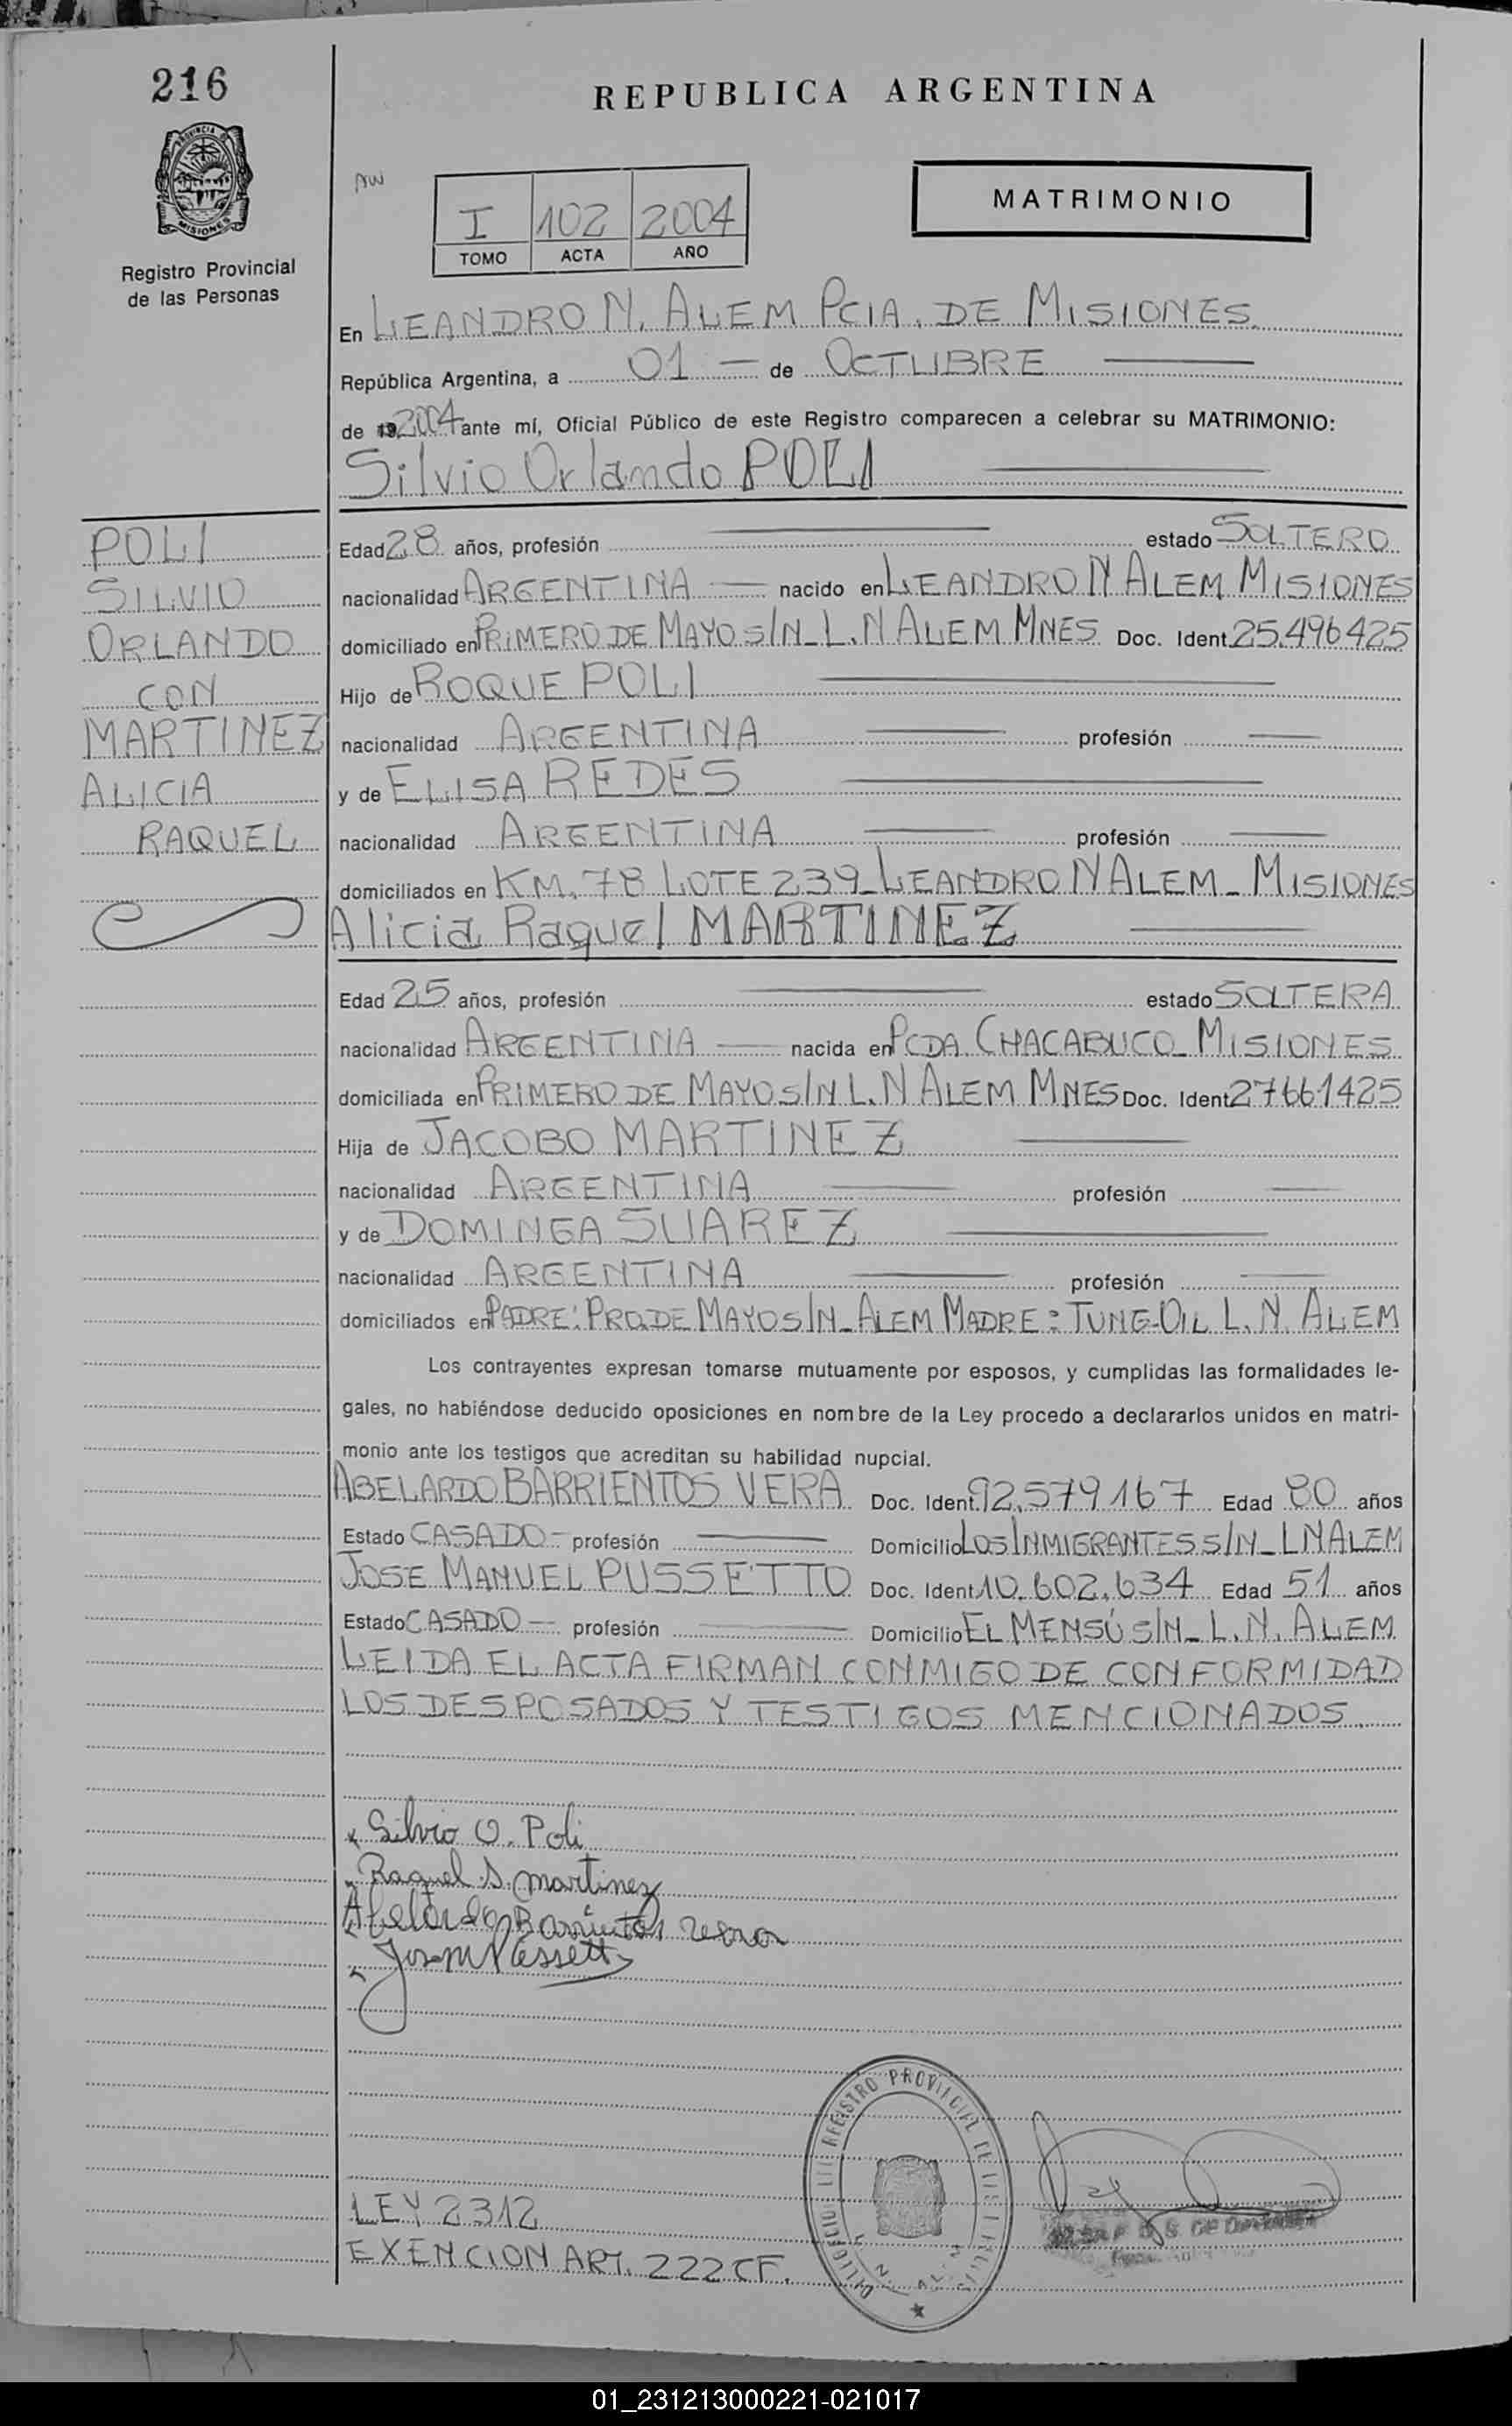 216
REPUBLICA ARGENTINA
PROVINCIA DE
MISIONES
Registro Provincial
de las Personas
AW
MATRIMONIO
I 102 2004
TOMO ACTA AÑO
En LEANDRO N. ALEM PCIA. DE MISIONES
República Argentina, a 01 — de OCTUBRE
de 19 2004 ante mí, Oficial Público de este Registro comparecen a celebrar su MATRIMONIO:
Silvio Orlando POLI
POLI
SILVIO
ORLANDO
CON
MARTINEZ
ALICIA
RAQUEL
Edad 28 años, profesión estado SOLTERO
nacionalidad ARGENTINA — nacido en LEANDRO N ALEM MISIONES
domiciliado en PRIMERO DE MAYO S/N_L.N ALEM MNES Doc. Ident. 25.496425
Hijo de ROQUE POLI
nacionalidad ARGENTINA profesión
y de ELISA REDES
nacionalidad ARGENTINA profesión
domiciliados en KM. 78 LOTE 239_LEANDRO N ALEM_MISIONES
Alicia Raquel MARTINEZ
Edad 25 años, profesión estado SOLTERA
nacionalidad ARGENTINA — nacida en PCDA CHACABUCO_MISIONES
domiciliada en PRIMERO DE MAYO S/N L.N ALEM MNES Doc. Ident. 27661425
Hija de JACOBO MARTINEZ
nacionalidad ARGENTINA profesión
y de DOMINGA SUAREZ
nacionalidad ARGENTINA profesión
domiciliados en PADRE: PRO.DE MAYO S/N_ALEM MADRE: TUNG-OIL L.N. ALEM
Los contrayentes expresan tomarse mutuamente por esposos, y cumplidas las formalidades le-
gales, no habiéndose deducido oposiciones en nombre de la Ley procedo a declararlos unidos en matri-
monio ante los testigos que acreditan su habilidad nupcial.
ABELARDO BARRIENTOS VERA Doc. Ident. 92.579167 Edad 80 años
Estado CASADO — profesión Domicilio LOS INMIGRANTES S/N_LNALEM
JOSE MANUEL PUSSETTO Doc. Ident. 10.602.634 Edad 51 años
Estado CASADO — profesión Domicilio EL MENSÚ S/N_L.N. ALEM
LEIDA EL ACTA FIRMAN CONMIGO DE CONFORMIDAD
LOS DESPOSADOS Y TESTIGOS MENCIONADOS
Silvio O. Poli
Raquel A. martinez
Abelardo Barrientos vera
REGISTRO PROVINCIAL DE LAS
LEY 2312
EXENCION ART. 222 CF.
01_231213000221-021017